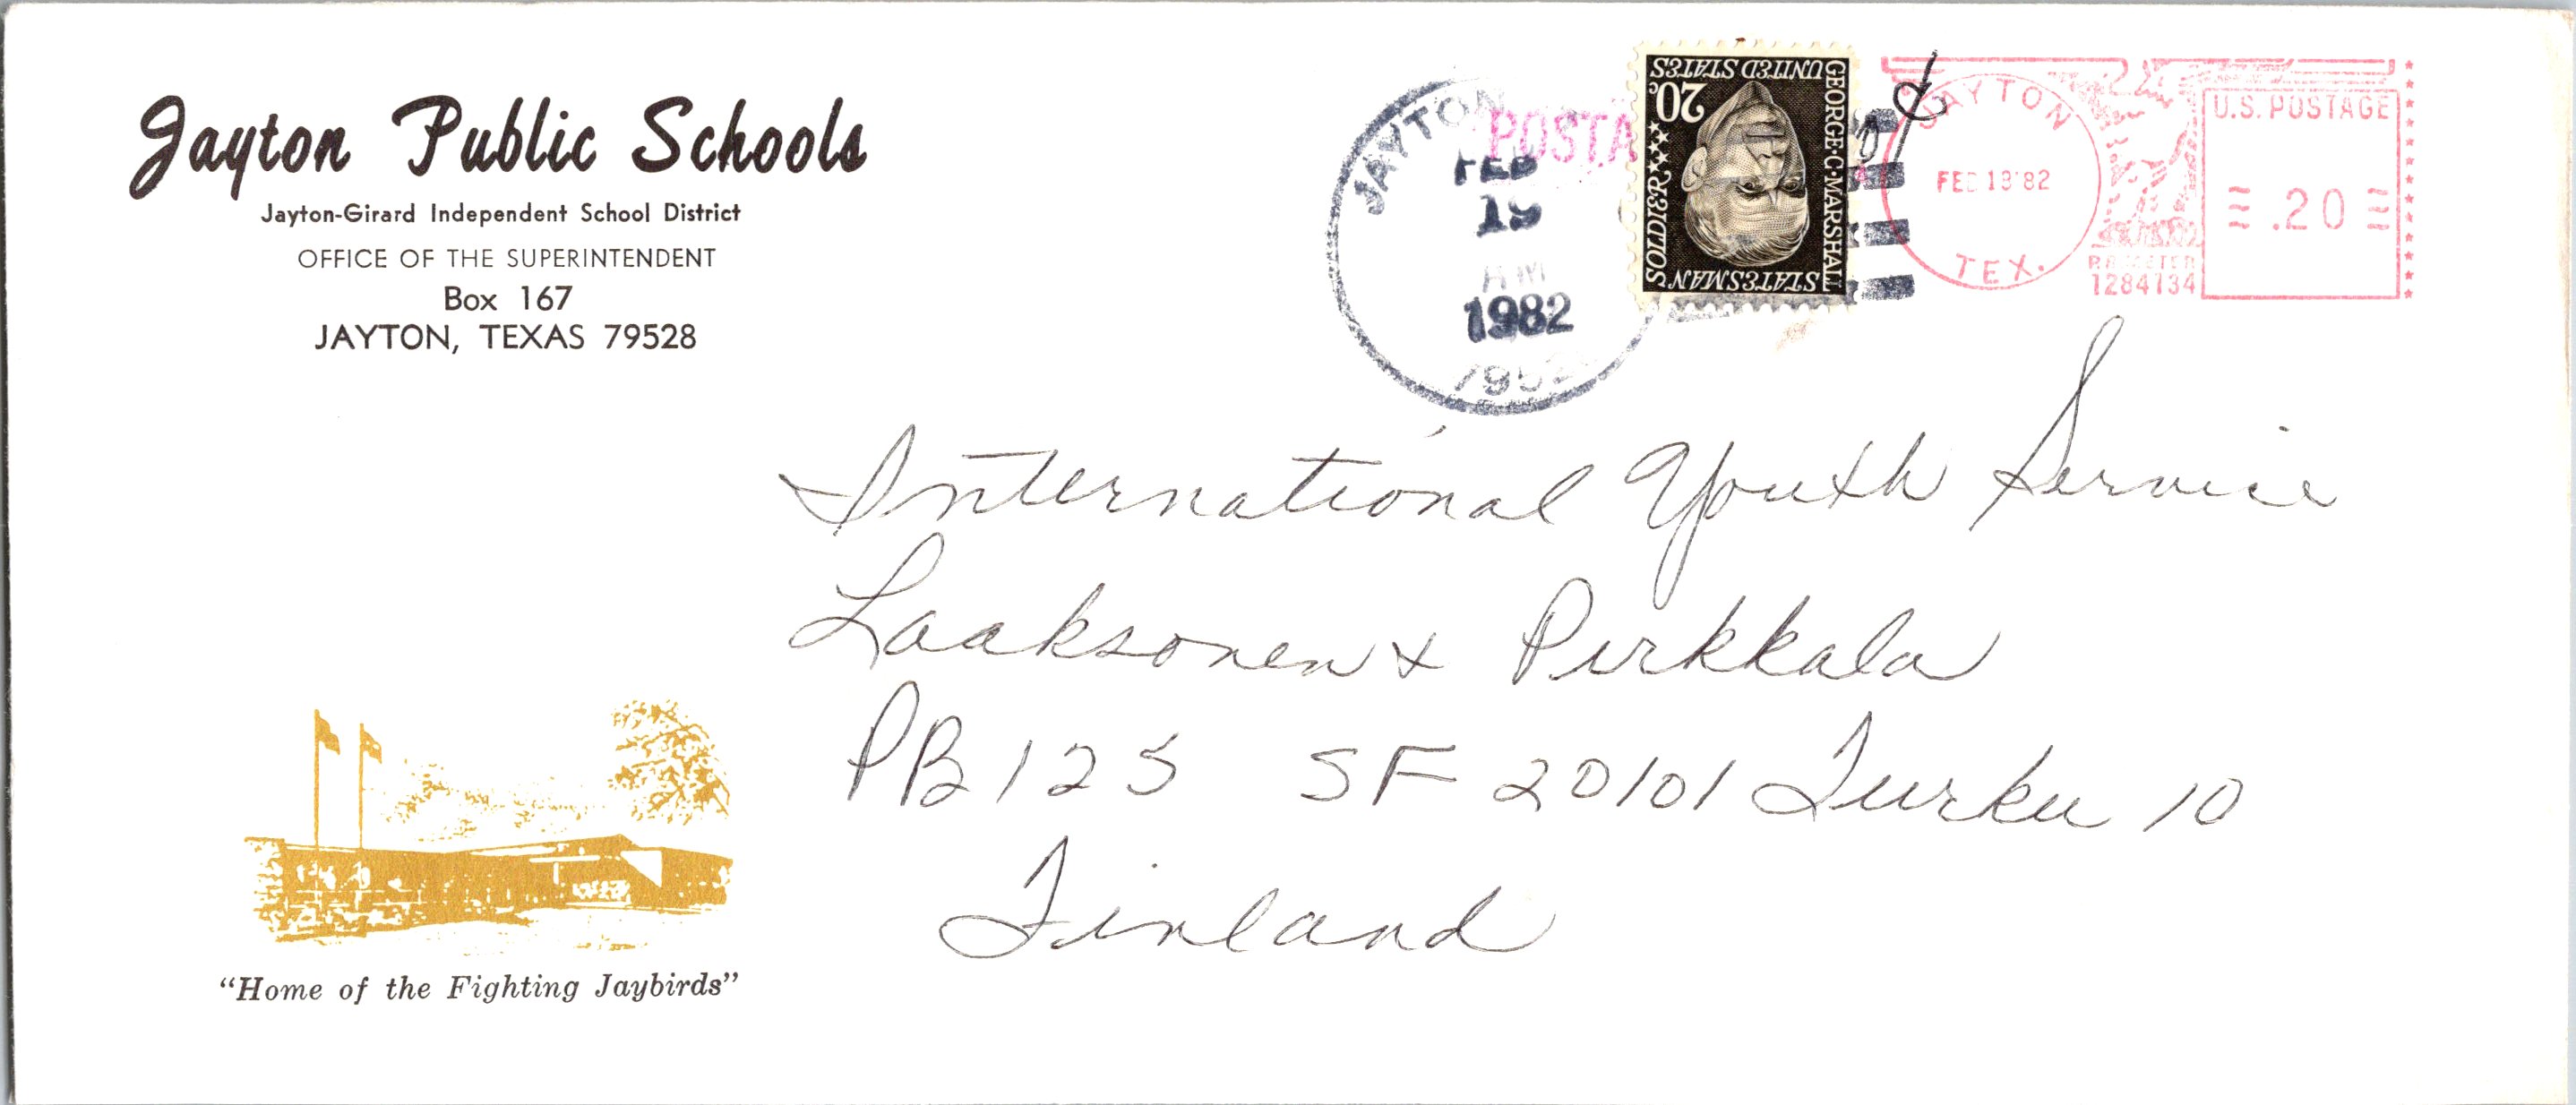 Jayton Public Schools
Jayton-Girard Independent School District
OFFICE OF THE SUPERINTENDENT
Box 167
JAYTON, TEXAS 79528
JAYTON
FEB
19
AM
1982
7952
POSTA
UNITED STATES
20c
GEORGE·C·MARSHALL
SOLDIER
STATESMAN
JAYTON
FEB 18'82
TEX.
U.S. POSTAGE
.20
1284134
International Youth Service
Laaksonen & Pirkkala
PB 125 SF 20101 Turku 10
Finland
"Home of the Fighting Jaybirds"